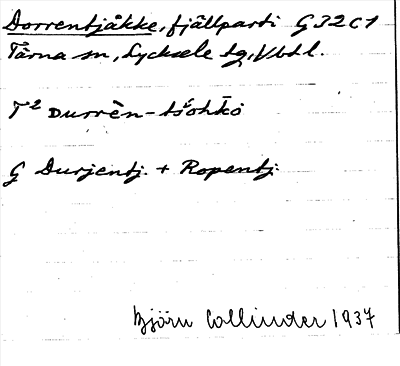 Dorrentjåkke, fjällparti G32C1
Tärna sn, Lycksele lg, Vbtl.
T² Durrèn-tšohkō
G Durjentj. + Ropentj.
Björn Collinder 1937